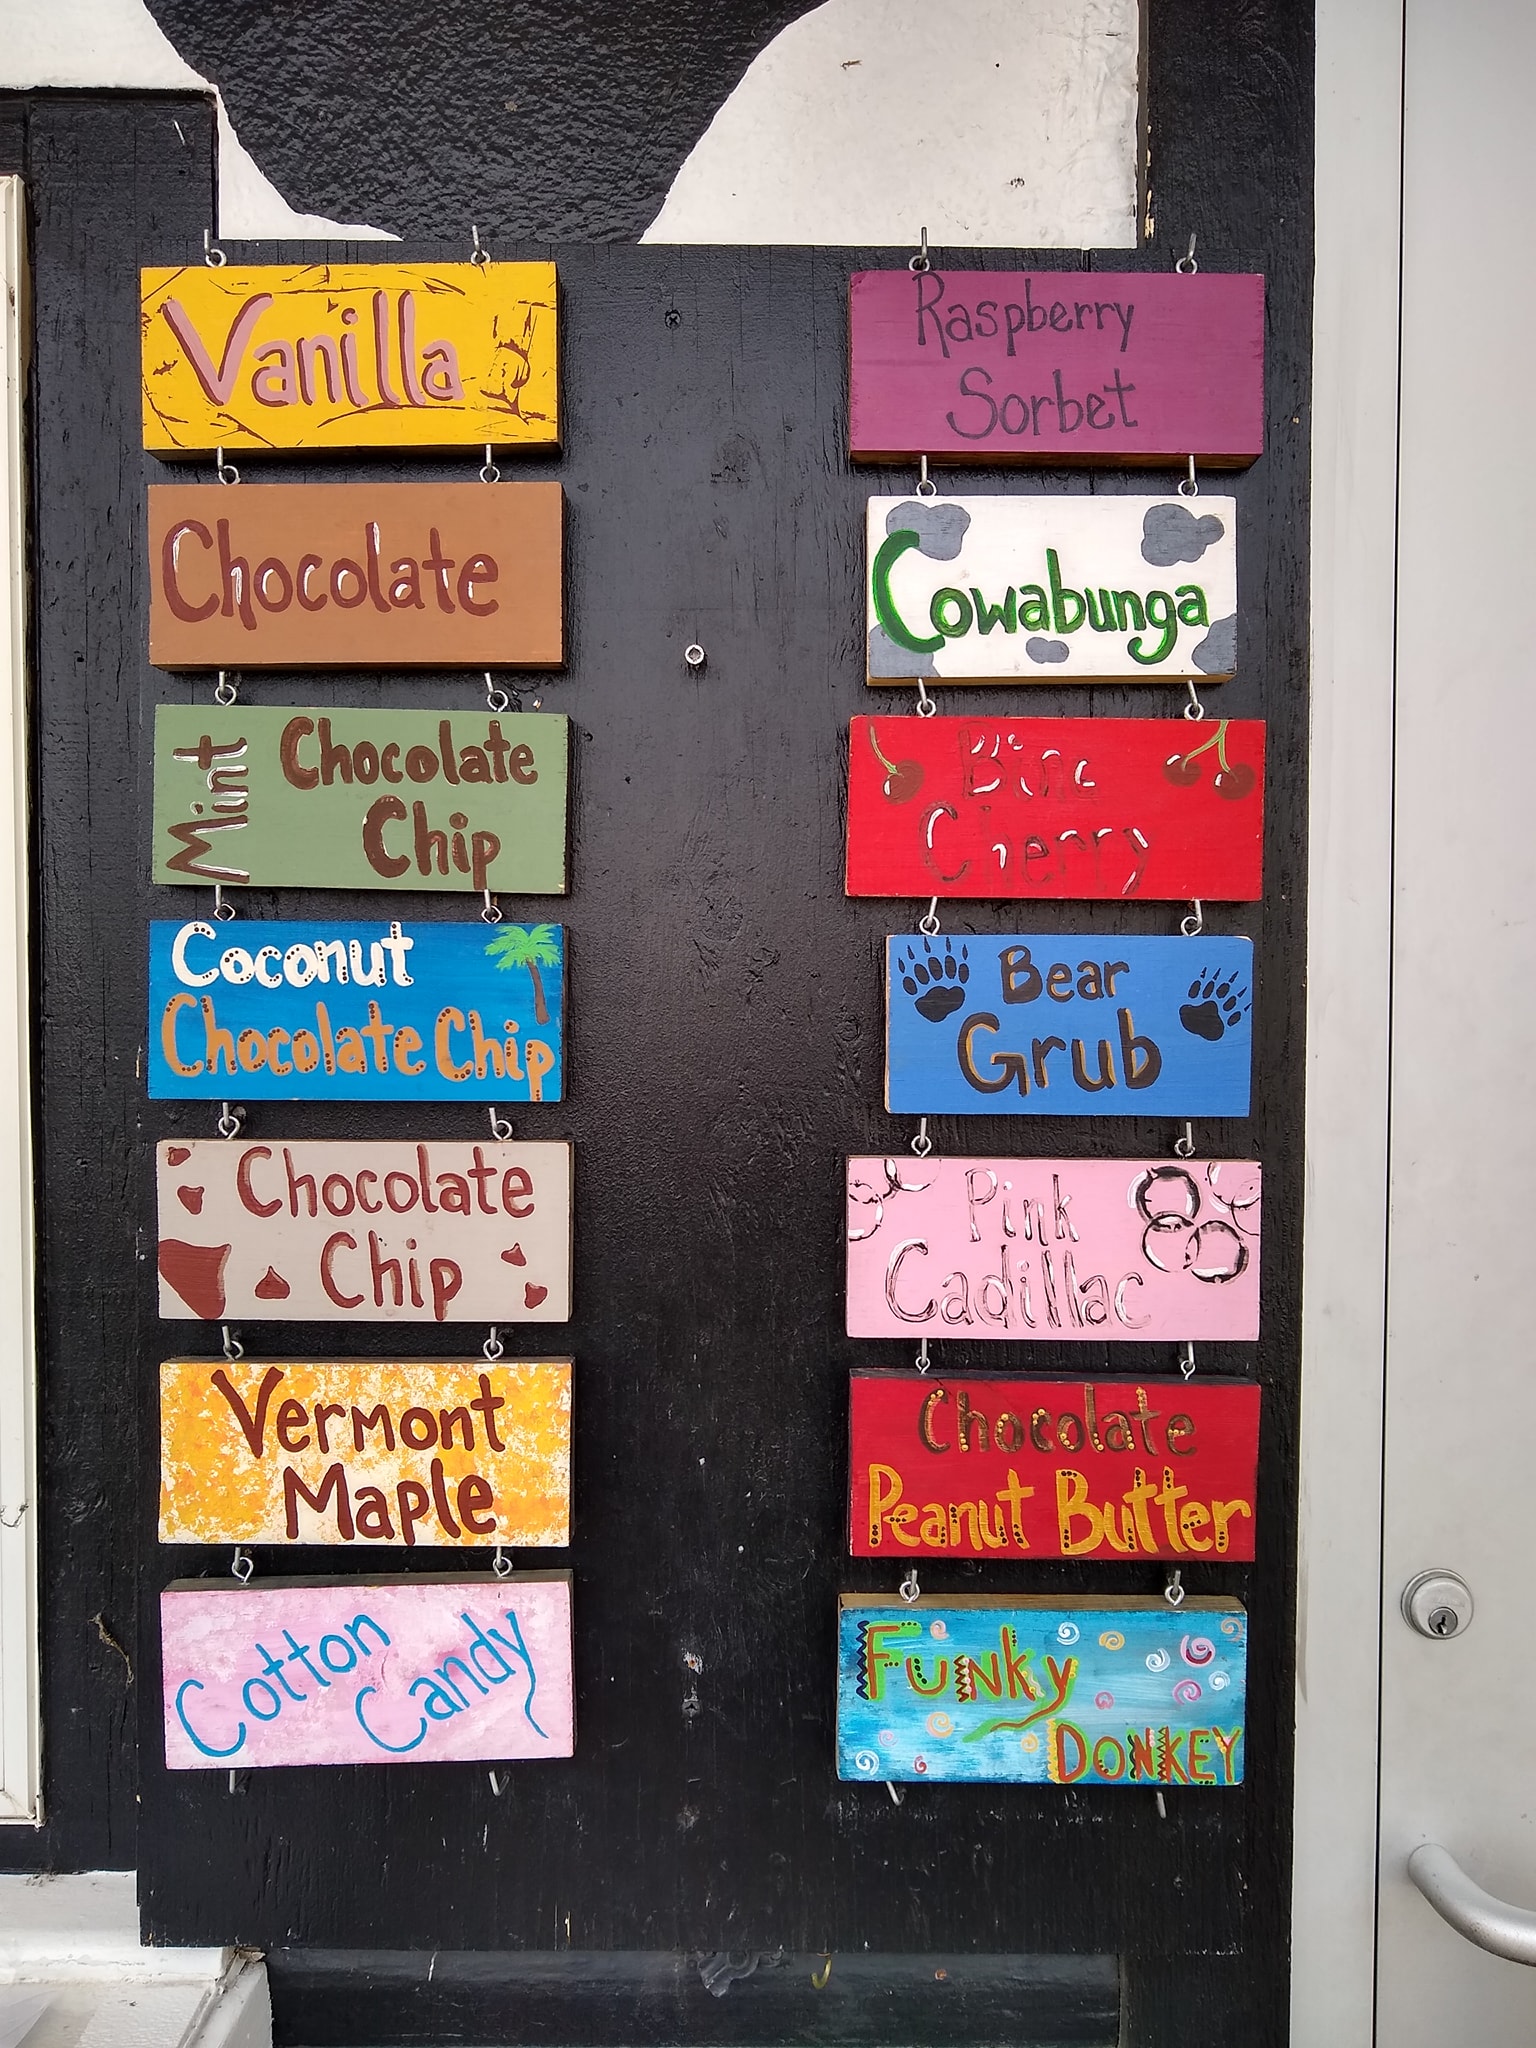 Vanilla
Chocolate
Mint
Chocolate
Chip
Coconut
Chocolate Chip
Chocolate
Chip
Vermont
Maple
Cotton
Candy
Raspberry
Sorbet
Cowabunga
Bing
Cherry
Bear
Grub
Pink
Cadillac
Chocolate
Peanut Butter
Funky
DONKEY